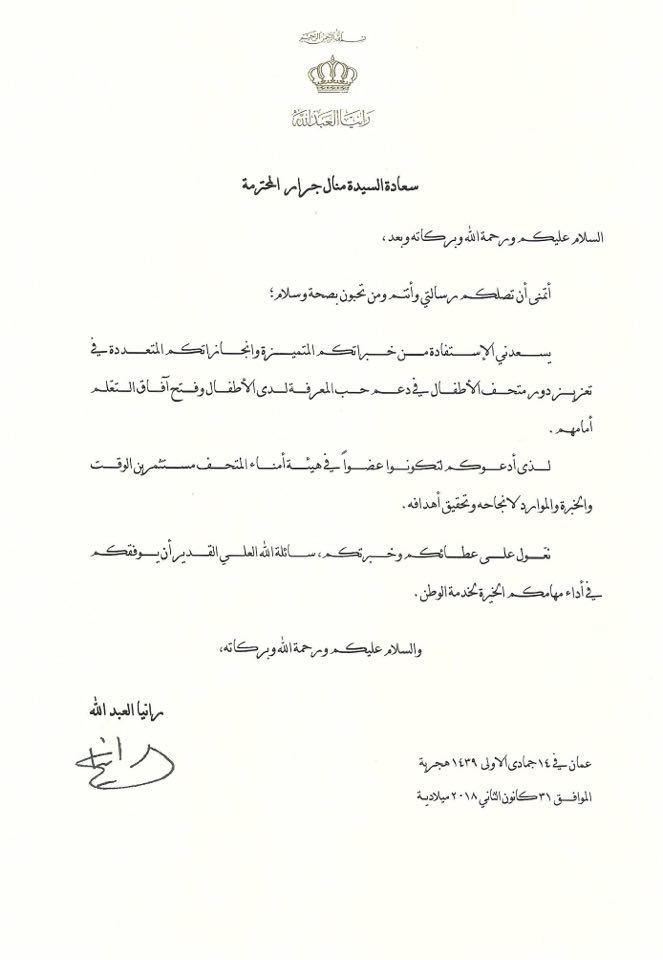 بسم الله الرحمن الرحيم
رانيا العبدالله
سعادة السيدة منال جرار المحترمة
السلام عليكم ورحمة الله وبركاته وبعد،
أتمنى أن تصلكم رسالتي وأنتم ومن تحبون بصحة وسلام؛
يسعدني الإستفادة من خبراتكم المتميزة وانجازاتكم المتعددة في
تعزيز دور متحف الأطفال في دعم حب المعرفة لدى الأطفال وفتح آفاق التعلّم
أمامهم.
لذى أدعوكم لتكونوا عضواً في هيئة أمناء المتحف مستثمرين الوقت
والخبرة والموارد لانجاحه وتحقيق أهدافه.
نعول على عطائكم وخبرتكم، سائلة الله العلي القدير أن يوفقكم
في أداء مهامكم الخيرة لخدمة الوطن.
والسلام عليكم ورحمة الله وبركاته،
رانيا العبد الله
رانيا
عمان في ١٤ جمادى الاولى ١٤٣٩ هجرية
الموافق ٣١ كانون الثاني ٢٠١٨ ميلادية